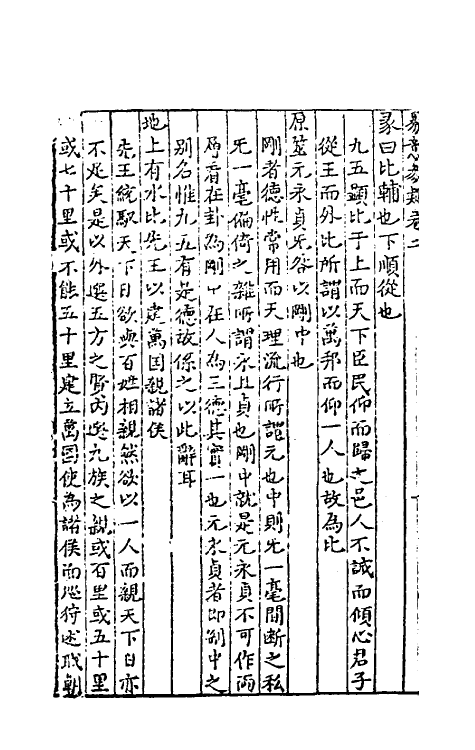 彖曰比輔也下順從也
九五顯比于上而天下臣民仰而歸之邑人不誡而傾心君子
從王而外比所謂以萬邦而仰一人也故為比
原筮元永貞无咎以剛中也
剛者德性常用而天理流行所謂元也中則无一毫間断之私
无一毫偏倚之雜所謂永且貞也剛中就是元永貞不可作兩
層看在卦為剛中在人為三德其實一也元永貞者即剛中之
别名惟九五有是德故係之以此辭耳
地上有水比先王以建萬国親諸侯
先王統馭天下曰欲與百姓相親然欲以一人而親天下日亦
不足矣是以外選五方之賢內選九族之親或百里或五十里
或七十里或不能五十里建立萬國使為諸侯而巡狩述職朝